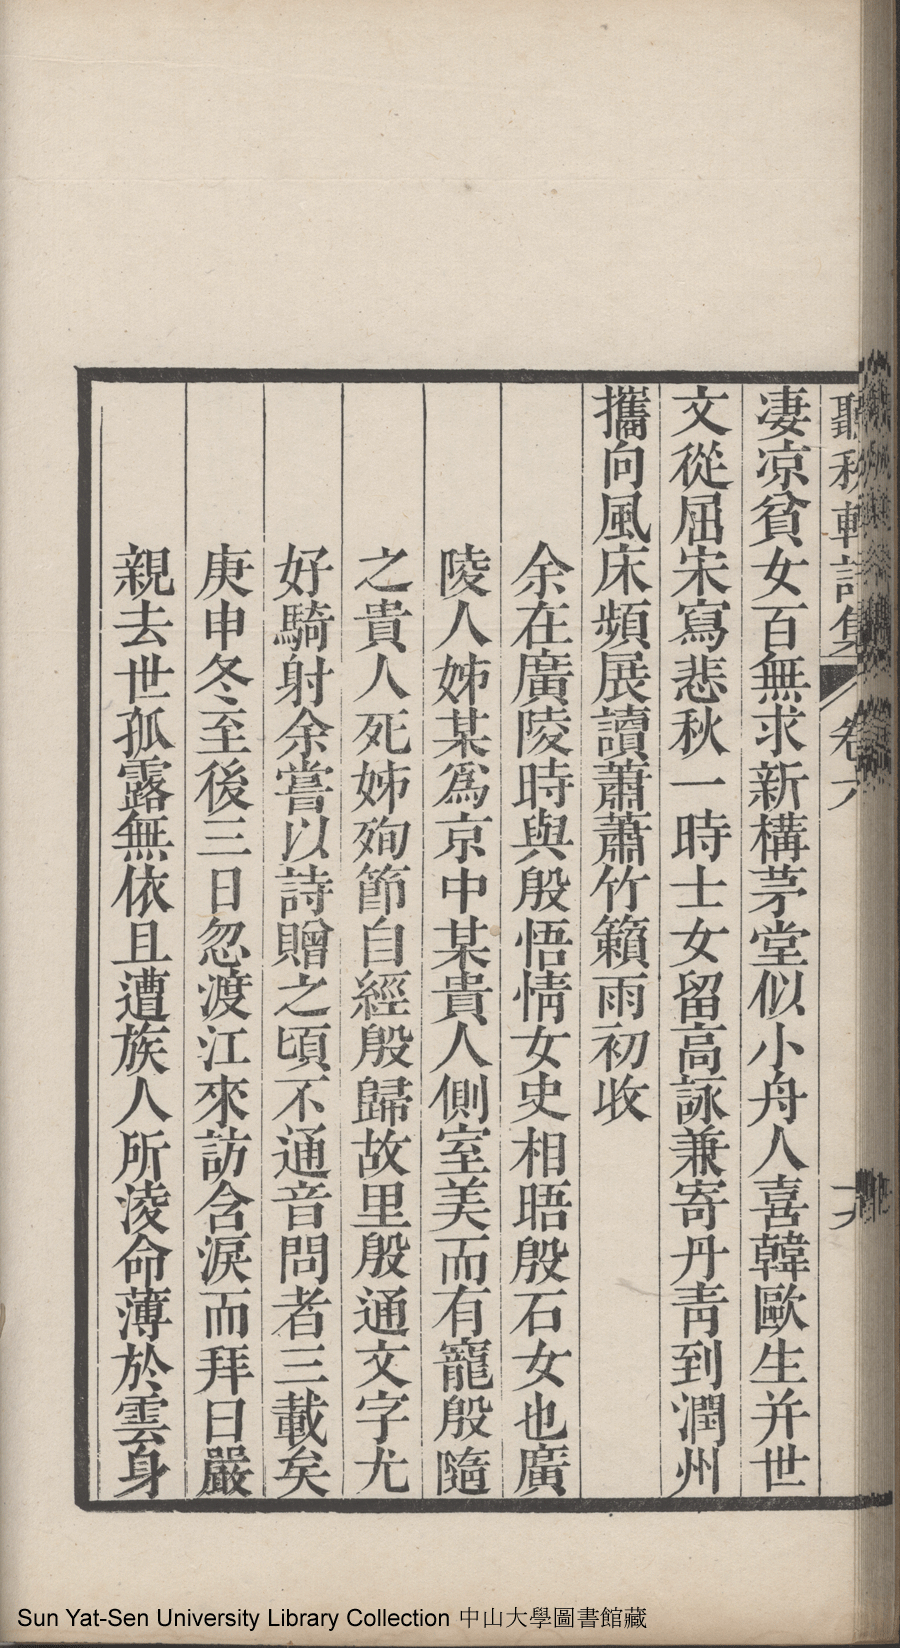 聽秋軒詩集 卷六
淒凉貧女百無求新構茅堂似小舟人喜韓歐生并世
文從屈宋寫悲秋一時士女留高詠兼寄丹青到潤州
攜向風床頻展讀蕭蕭竹籟雨初收
余在廣陵時與殷悟情女史相晤殷石女也廣
陵人姊某爲京中某貴人側室美而有寵殷隨
之貴人死姊殉節自經殷歸故里殷通文字尤
好騎射余嘗以詩贈之頃不通音問者三載矣
庚申冬至後三日忽渡江來訪含淚而拜曰嚴
親去世孤露無依且遭族人所淩命薄於雲身
Sun Yat-Sen University Library Collection 中山大學圖書館藏